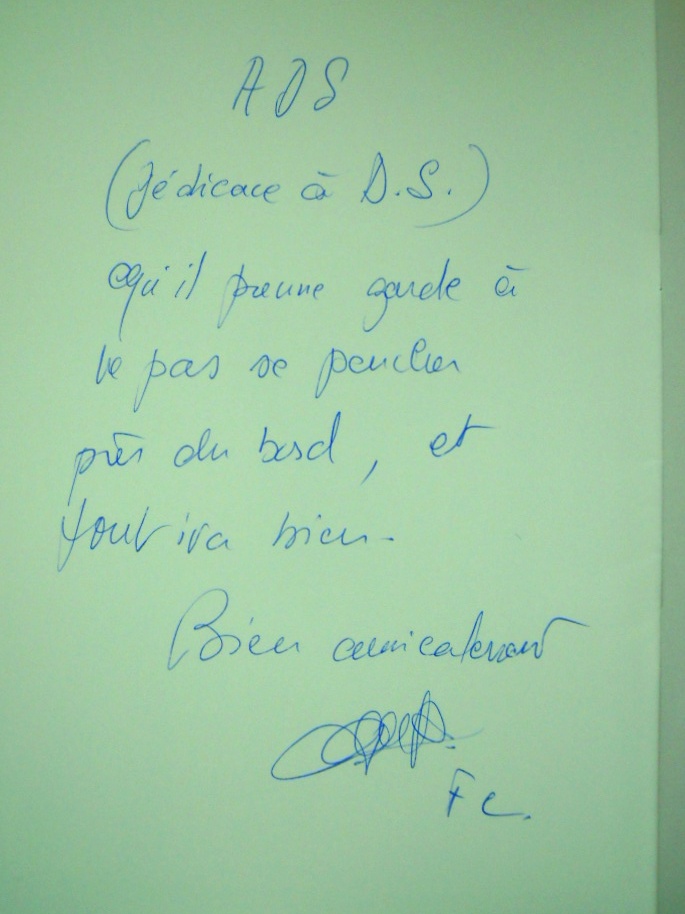 A D S
(Dédicace à D.S.)
Qu'il prenne garde à
ne pas se pencher
près du bord, et
tout ira bien.
Bien amicalement
F C.